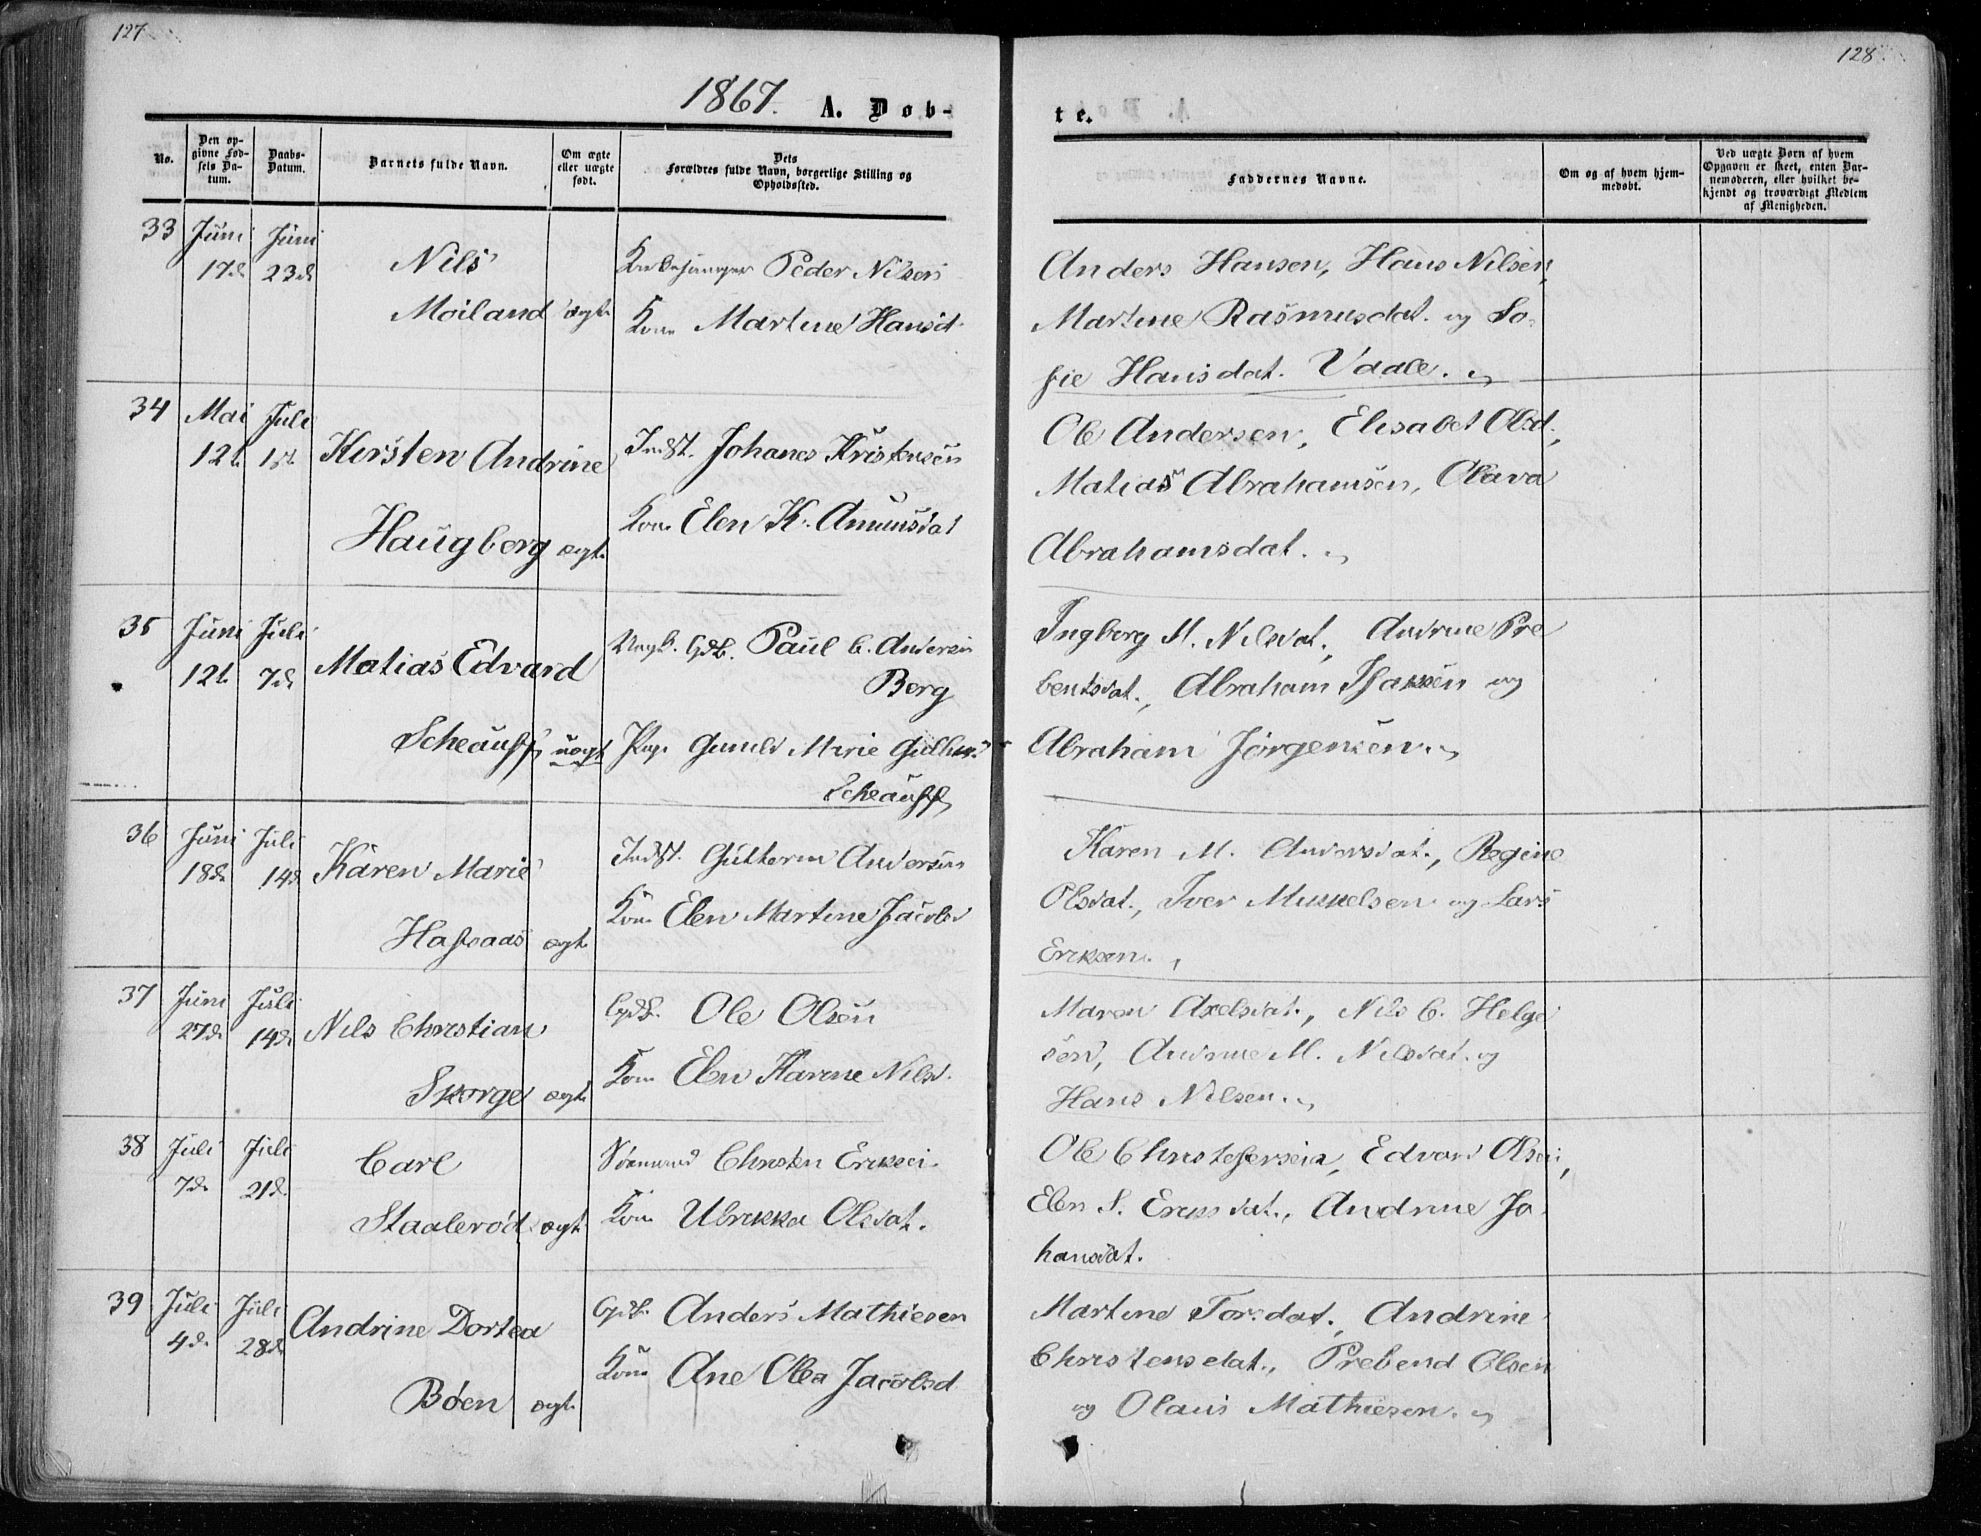 127
128
1867. A. Døb-
te.
No.
Den op-
givne Fød-
sels Da-
tum.
Daabs-
Datum.
Barnets fulde Navn.
Om ægte
eller uægte
født.
Dets
Forældres fulde Navn, borgerlige Stilling og
Opholdssted.
Faddernes Navne.
Om og af hvem hjem-
medøbt.
Ved uægte Børn af hvem
Opgaven er skeet, enten Bar-
nemoderen, eller hvilket be-
kjendt og troværdigt Medlem
af Menigheden.
33 Juni 17d. Juni 23d.
Nils
Moiland ægt.
Peder Nilsen
Kone Martine Hansd.
Anders Hansen, Hans Nilsen,
Martine Rasmusdat. og So-
fie Hansdat. Vaale.
34 Mai 12t. Juli 1st.
Kirsten Andrine
Haugberg ægt.
Indst. Johanes Kristensen
Kone Elen K. Amunsdat
Ole Andersen, Elisabet Olsd.,
Matias Abrahamsen, Olava
Abrahamsdat.
35 Juni 12t. Juli 7d.
Matias Edvard
Scheauff uægt
Ungk. Gdb. Paul C. Andersen
Berg
Pige Marie
Scheauff
Ingborg M. Nilsdat., Andrine Pre
bentsdat., Abraham Isaksen og
Abraham Jörgensen.
36 Juni 18d. Juli 14d.
Karen Marie
ægt.
Indst. Gutterm Andersen
Kone Elen Martine Jacobsd
Karen M. Andersdat., Regine
Olsdat., Iver Mikkelsen og Lars
Eriksen.
37 Juni 27d. Juli 14d.
Nils Christian
Skorge ægt.
Gdb. Ole Olsen
Kone Elen Karine Nilsd.
Maren Axelsdat., Nils C. Helge
sen, Andrine M. Nilsdat. og
Hans Nilsen.
38 Juli 7d. Juli 21d.
Carl
Staalerød ægt.
Sömand Christen Eriksen
Kone Ulrikka Olsdat.
Ole Christofersen, Edvard Olsen,
Elen S. Eriksdat., Andrine Jo-
hansdat.
39 Juli 4d. Juli 28d.
Andrine Dortea
Böen ægt.
Gdb. Anders Mathiesen
Kone Ane Olea Jacobsd
Martine Torsdat., Andrine
Christensdat., Prebend Olsen
og Olaus Mathiesen.